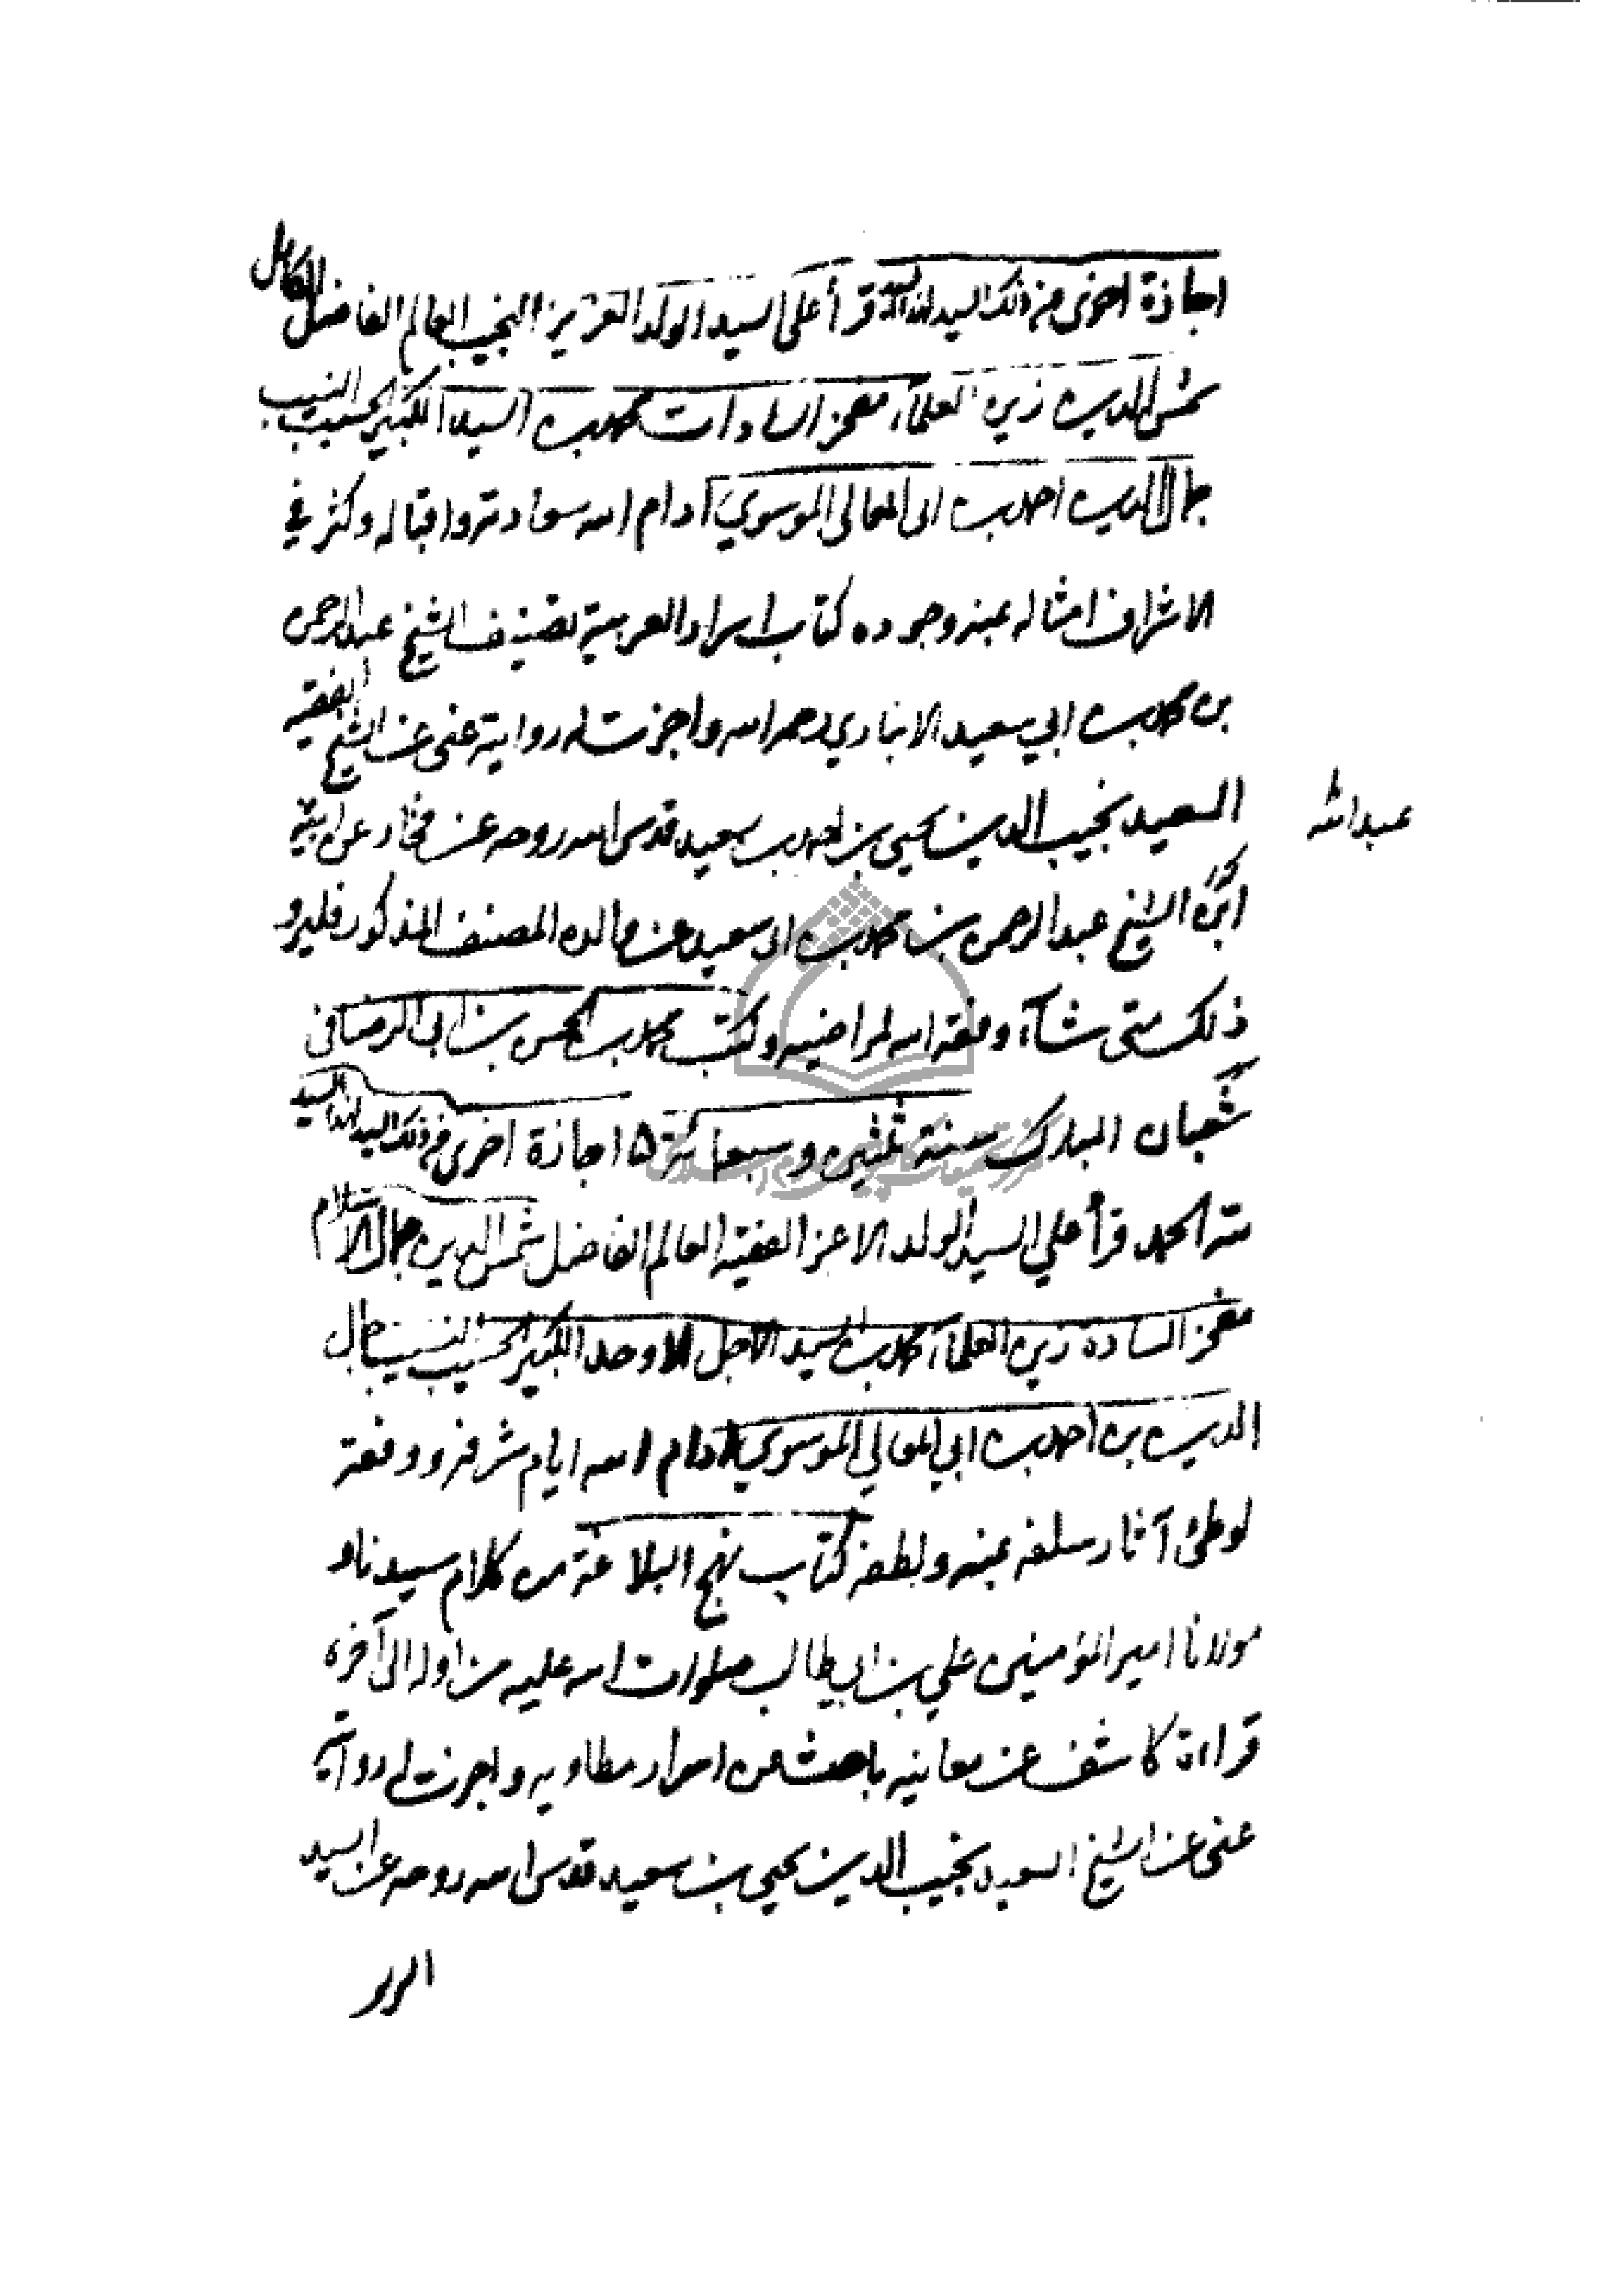 اجازة اخرى من ذلك السيد لهذا السيد قرأ علي السيد الولد العزيز النجيب العالم الفاضل الكامل
شمس الدين زين العلماء مفخر السادات محمد بن السيد الكبير الحسيب النسيب
جمال الدين احمد بن ابى المعالى الموسوي ادام الله سعادته واقباله وكثر في
الاشراف امثاله بمنه وجوده كتاب اسرار العربية تصنيف الشيخ عبد الرحمن
بن محمد بن ابي سعيد الانباري رحمه الله واجزت له روايته عنى عن الشيخ الفقيه
السعيد نجيب الدين يحيى بن احمد بن سعيد قدس الله روحه عن
عبدالله
الشيخ عبد الرحمن بن محمد بن ابى سعيد عن والده المصنف المذكور فليرو
ذلك متى شاء وفقه الله لمراضيه وكتب محمد بن الحسن بن ابى الرضا فى
شعبان المبارك سنة ثلثين وسبعمائة ه اجازة اخرى من ذلك السيد لهذا السيد
لله الحمد قرأ علي السيد الولد الاعز الفقيه العالم الفاضل شمس الدين جمال الاسلام
مفخر السادة زين العلماء محمد بن السيد الاجل الاوحد الكبير الحسيب النسيب جمال
الدين بن احمد بن ابي المعالي الموسوي ادام الله ايام شرفه ووفقه
لوطئ آثار سلفه بمنه ولطفه كتاب نهج البلاغة من كلام سيدنا و
مولانا امير المؤمنين علي بن ابيطالب صلوات الله عليه من اوله الى آخره
قراءة كاشف عن معانيه باحث عن اسرار مطاويه واجزت له روايته
عنى عن الشيخ السعيد نجيب الدين يحيى بن سعيد قدس الله روحه عن السيد